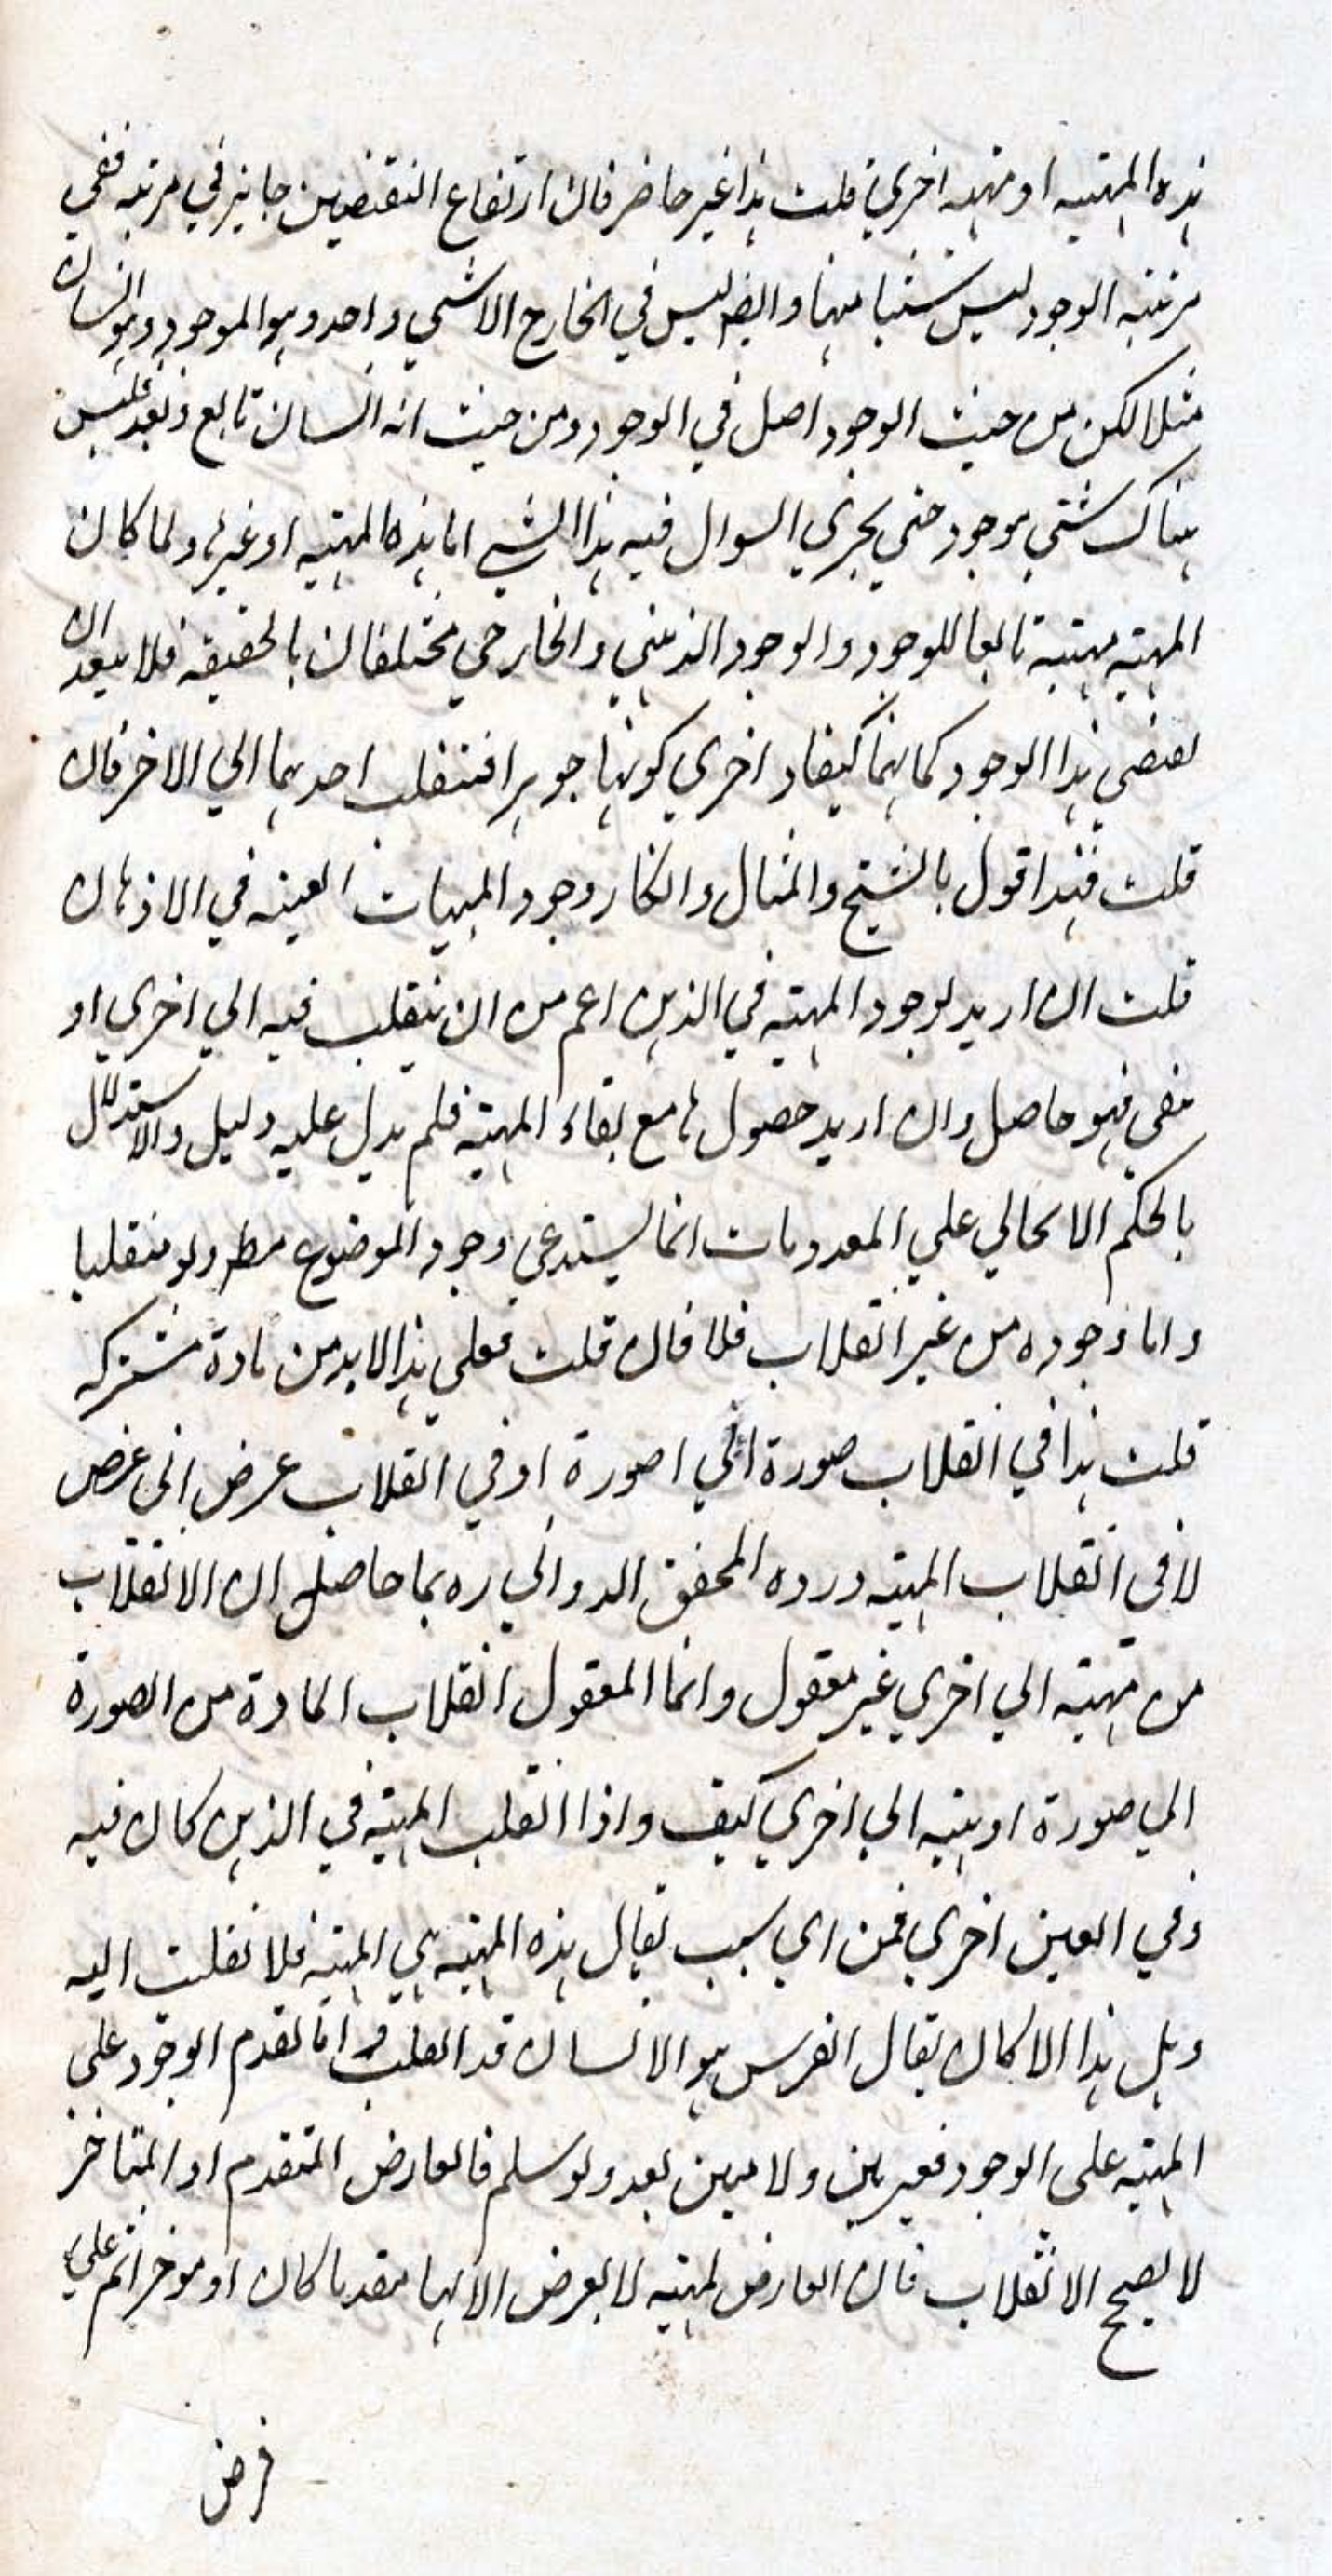 هذه المهية او مهية اخري قلت هذا غير حاضر فان ارتفاع النقيضين جايز في مرتبه ففي
مرتبه الوجود ليس شيئا منها وايضا ليس في الخارج الا شي واحد وهو الموجود وهو انسان
مثلا لكن من حيث الوجود اصل في الوجود ومن حيث انه انسان تابع وبعد فليس
هناك شئي موجود حتي يجري السوال فيه هذا الشي اما هذه المهية او غيرها ولما كان
المهية مهية تابعا للوجود والوجود الذهني والخارجي مختلفان بالحقيقه فلا يبعد ان
يقتضي هذا الوجود كما انها كيفا و اخري كونها جوهرا فتنقلب احدهما الي الاخر فان
قلت فهذا قول بالشبح والمثال وانكار وجود المهيات العينه في الاذهان
قلت ان اريد لوجود المهية في الذهن اعم من ان ينقلب فيه الي اخري او
يبقي فهو حاصل وان اريد حصولها مع بقاء المهية فلم يدل عليه دليل والاستدلال
بالحكم الايجابي علي المعدومات انما يستدعي وجود الموضوع مط ولو منقلبا
واما وجوده من غير انقلاب فلا فان قلت فعلي هذا لا بد من مادة مشتركه
قلت هذا في انقلاب صورة الي اصورة او في انقلاب عرض الي عرض
لا في انقلاب المهية ورده المحقق الدواني ره بما حاصله ان الانقلاب
من مهية الي اخري غير معقول وانما المعقول انقلاب المادة من الصورة
الي صورة او هيئه الي اخري كيف واذا انقلب المهية في الذهن كان فيه
وفي العين اخري فمن اي سبب يقال هذه المهية هي المهية فلا نقلت اليه
وهل هذا الا كان يقال الفرس هو الانسان قد انقلب فرا اما تقدم الوجود علي
المهية علي الوجود فغير بين ولا مبين بعد ولو سلم فالعارض المتقدم او المتاخر
لا يصحح الانقلاب فان العارض لمهية لا يعرض الا لها متقدما كان او موخرا ثم علي
فرض